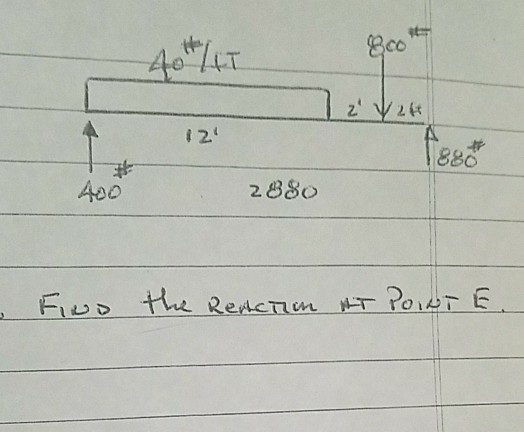 40#/FT
800#
2' 2ft
12'
400#
880#
2880
. FIND the REACTION AT POINT E.